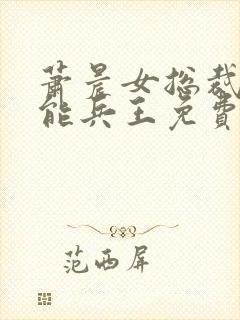 萧晨女总裁
能兵王免费
范西屏